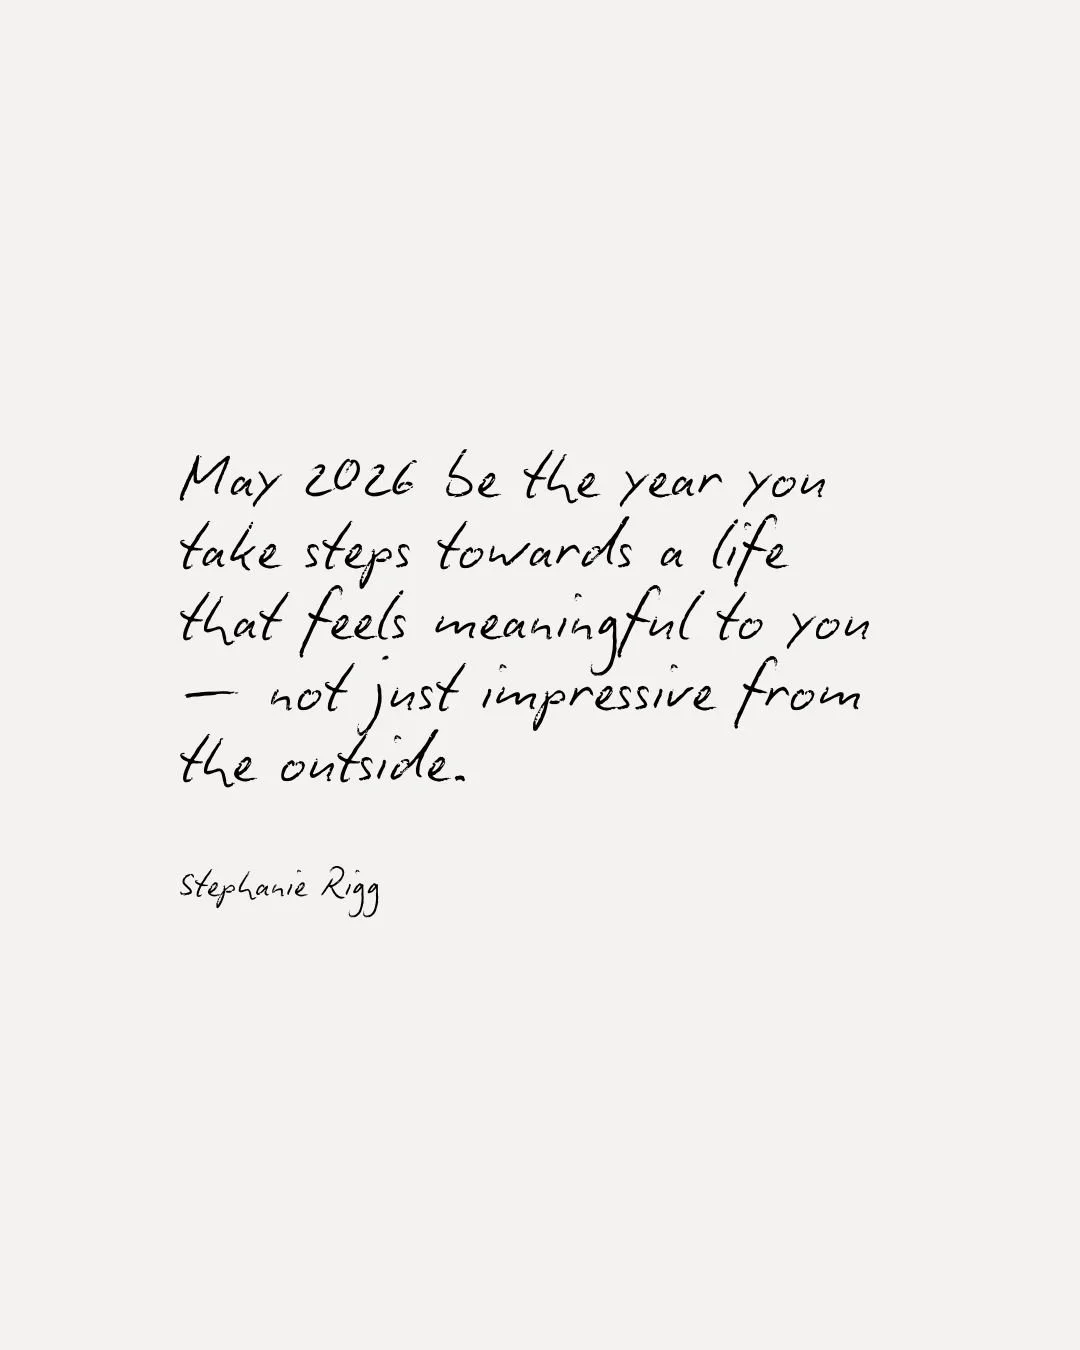 May 2026 be the year you
take steps towards a life
that feels meaningful to you
— not just impressive from
the outside.
Stephanie Rigg